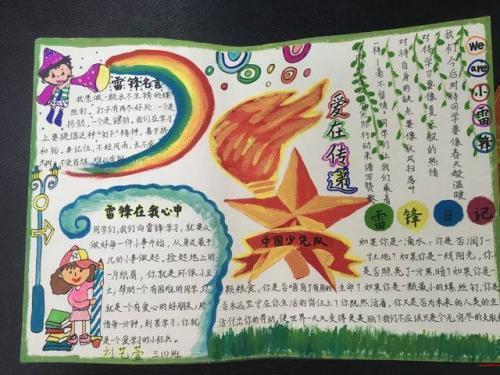 雷锋名言
我愿做一颗永不生锈的螺
丝钉。钉子有两个好处:一个是
挤劲,一个是钻劲,我们在学习
上要提倡这种"钉子"精神,善于挤
和钻。要记住:不经风雨,长不成
爱在传递
We are 小雷锋
我们今后对待同学要像春天般温暖
对待学习要像夏天般的热情
对待自身的缺点要像秋风扫落叶
一样
雷锋在我心中
同学们,我们向雷锋学习,就要从
做好每一件小事开始,从身边最平
凡的小事做起,捡起地上的
一片纸屑,你就是环保小卫
士,帮助一个有困难的同学,你
就是一个有爱心的好朋友,珍
惜每一分钟,刻苦学习,你就
是一个爱学习的小标兵
刘艺莹 三(1)班
中国少先队
雷锋日记
如果你是一滴水,你是否滋润了一
寸土地?如果你是一线阳光,你
是否照亮了一分黑暗?如果你是一
颗粮食,你是否哺育了有用的生命?如果你是一颗最小的螺丝钉,你是
否永远坚守在你生活的岗位上?你既然活着,你又是否为未来的人类生
活付出你的劳动,使世界一天天变得更美丽?